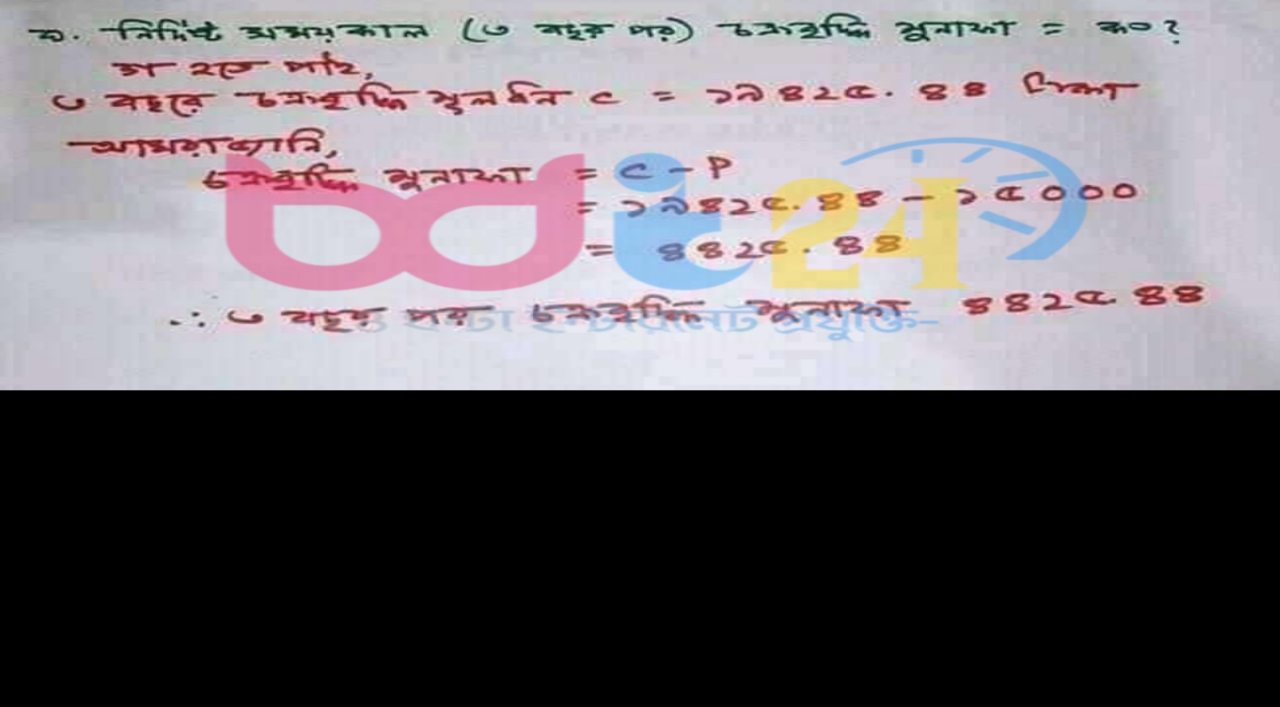 নির্দিষ্ট সময়কাল (৩ বছর পর) চক্রবৃদ্ধি মুনাফা = কত?
হতে পাই,
৩ বছরে চক্রবৃদ্ধি মূলধন C = ১৯৪২৫.৪৪ টাকা
আমরা জানি,
চক্রবৃদ্ধি মুনাফা = C - P
= ১৯৪২৫.৪৪ - ১৫০০০
= ৪৪২৫.৪৪
∴ ৩ বছর পর চক্রবৃদ্ধি মুনাফা ৪৪২৫.৪৪
bdit24
২৪ ঘন্টা ইন্টারনেট প্রযুক্তি-